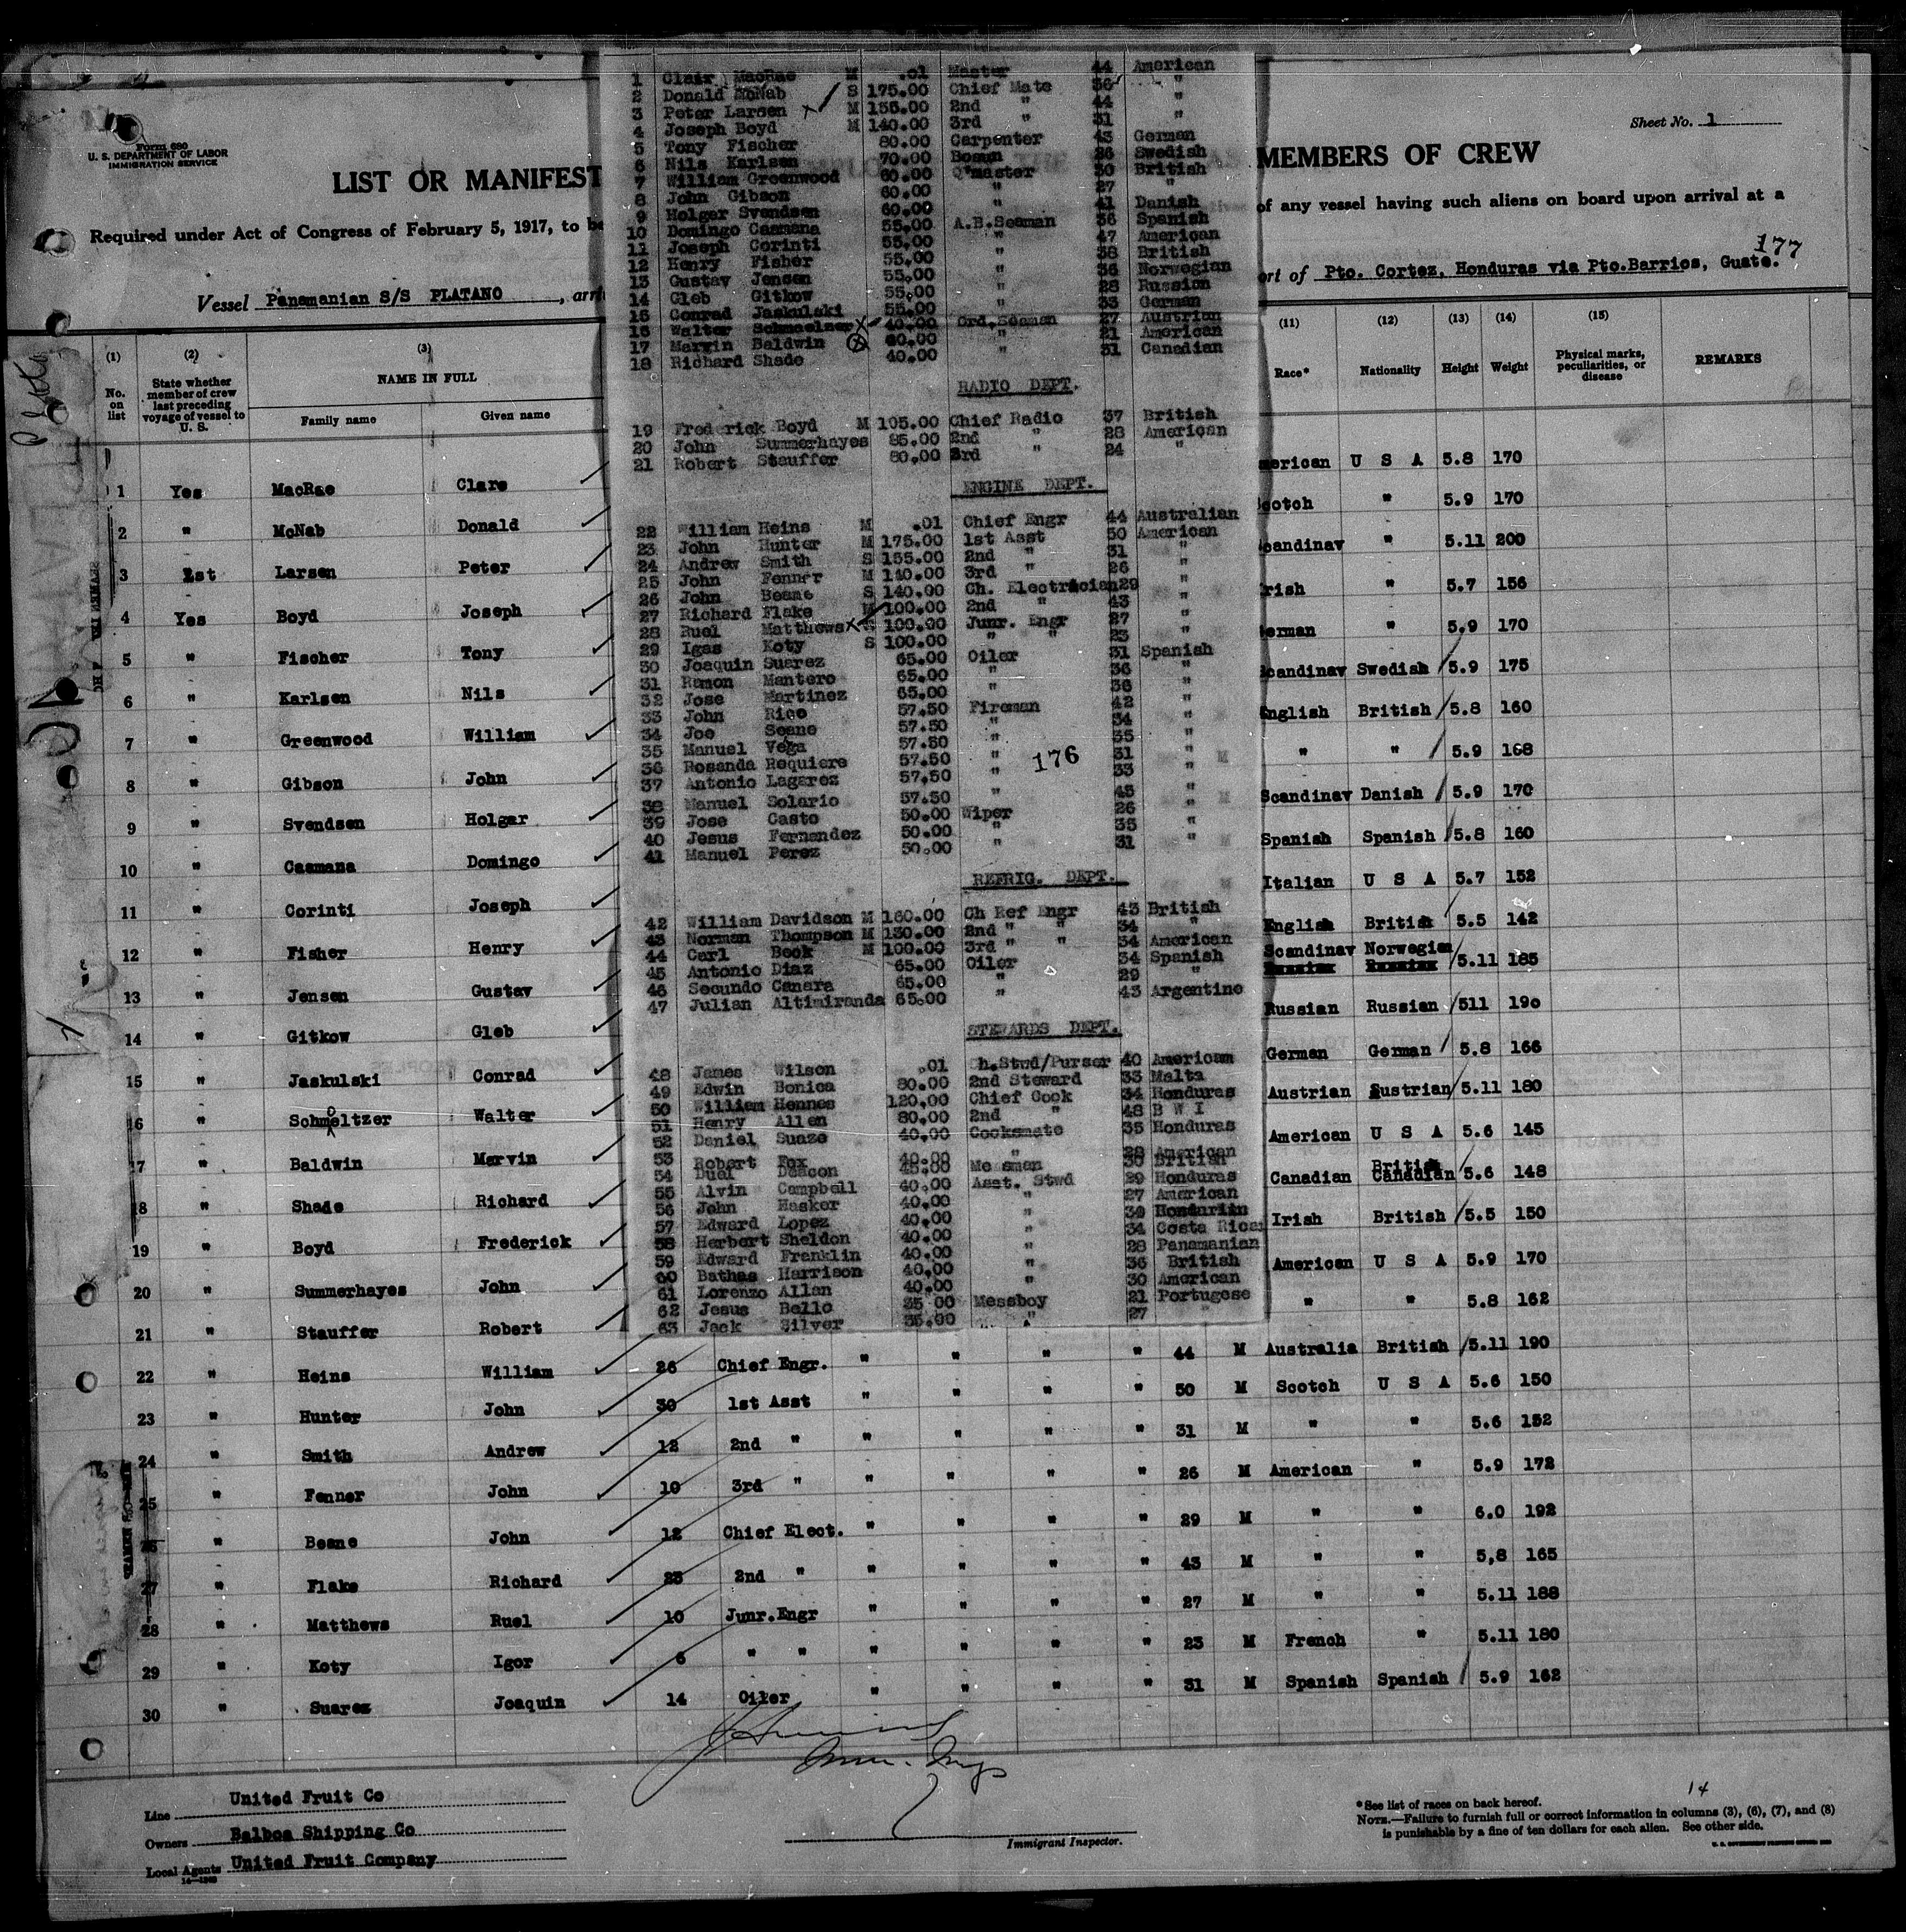 Sheet No. 1
Form 680
U. S. DEPARTMENT OF LABOR
IMMIGRATION SERVICE
LIST OR MANIFEST
MEMBERS OF CREW
Required under Act of Congress of February 5, 1917, to be
of any vessel having such aliens on board upon arrival at a
177
Vessel Panamanian S/S PLATANO, arri
ort of Pto. Cortez, Honduras via Pto.Barrios, Guate.
1 Clair MacRae M .01 Master 44 American
2 Donald McNab S 175.00 Chief Mate 36 "
3 Peter Larsen M 155.00 2nd " 44 "
4 Joseph Boyd M 140.00 3rd " 31 "
5 Tony Fischer 80.00 Carpenter 43 German
6 Nils Karlsen 70.00 Bosun 26 Swedish
7 William Greenwood 60.00 Q'master 30 British
8 John Gibson 60.00 " 27 "
9 Holger Svendsen 60.00 " 41 Danish
10 Domingo Caamana 55.00 A.B.Seaman 36 Spanish
11 Joseph Corinti 55.00 " 47 American
12 Henry Fisher 55.00 " 38 British
13 Gustav Jensen 55.00 " 36 Norwegian
14 Gleb Gitkow 55.00 " 28 Russian
15 Conrad Jaskulski 55.00 " 33 German
16 Walter Schmoelner 40.00 Ord.Seaman 27 Austrian
17 Marvin Baldwin 40.00 " 21 American
18 Richard Shade 40.00 " 31 Canadian
RADIO DEPT.
19 Frederick Boyd M 105.00 Chief Radio 37 British
20 John Summerhayes 85.00 2nd " 28 American
21 Robert Stauffer 80.00 3rd " 24 "
ENGINE DEPT.
22 William Heins M .01 Chief Engr 44 Australian
23 John Hunter M 175.00 1st Asst 50 American
24 Andrew Smith S 155.00 2nd " 31 "
25 John Fenner M 140.00 3rd " 26 "
26 John Beane S 140.00 Ch. Electrician 29 "
27 Richard Flake M 100.00 2nd " 43 "
28 Ruel Matthews 100.00 Junr. Engr 27 "
29 Igas Koty S 100.00 " " 23 "
30 Joaquin Suarez 65.00 Oiler 31 Spanish
31 Ramon Mantero 65.00 " 36 "
32 Jose Martinez 65.00 " 36 "
33 John Rico 57.50 Fireman 42 "
34 Joe Seane 57.50 " 34 "
35 Manuel Vega 57.50 " 35 "
36 Rosenda Requiera 57.50 " 31 "
37 Antonio Lagarez 57.50 " 33 "
38 Manuel Solario 57.50 " 45 "
39 Jose Casto 50.00 Wiper 26 "
40 Jesus Fernandez 50.00 " 35 "
41 Manuel Perez 50.00 " 31 "
176
REFRIG. DEPT.
42 William Davidson M 160.00 Ch Ref Engr 43 British
43 Norman Thompson M 130.00 2nd " " 34 "
44 Carl Beck M 100.00 3rd " " 34 American
45 Antonio Diaz 65.00 Oiler 34 Spanish
46 Secundo Canara 65.00 " 29 "
47 Julian Altimiranda 65.00 " 43 Argentine
STEWARDS DEPT.
48 James Wilson .01 Ch.Stwd/Purser 40 American
49 Edwin Bonica 80.00 2nd Steward 33 Malta
50 William Hennes 120.00 Chief Cook 34 Honduras
51 Henry Allen 80.00 2nd " 48 B W I
52 Daniel Suazo 40.00 Cooksmate 35 Honduras
53 Robert Fox 40.00 " 28 American
54 Duel Deacon 45.00 Messman 30 British
55 Alvin Campbell 40.00 Asst. Stwd 29 Honduras
56 John Hasker 40.00 " 27 American
57 Edward Lopez 40.00 " Honduran
58 Herbert Sheldon 40.00 " 34 Costa Rican
59 Edward Franklin 40.00 " 28 Panamanian
60 Bathas Harrison 40.00 " 36 British
61 Lorenzo Allan 40.00 " 30 American
62 Jesus Bello 35 00 Messboy 21 Portugese
63 Jack Silver 35.00 " 27 "
(1) (2) (3) (11) (12) (13) (14) (15)
No. on list
State whether member of crew last preceding voyage of vessel to U. S.
NAME IN FULL
Family name Given name
Race* Nationality Height Weight Physical marks, peculiarities, or disease REMARKS
1 Yes MacRae Clare merican U S A 5.8 170
2 " McNab Donald cotch " 5.9 170
3 1st Larsen Peter candinav " 5.11 200
4 Yes Boyd Joseph rish " 5.7 156
5 " Fischer Tony erman " 5.9 170
6 " Karlsen Nils candinav Swedish 5.9 175
7 " Greenwood William English British 5.8 160
8 " Gibson John " " 5.9 168
9 " Svendsen Holgar Scandinav Danish 5.9 170
10 " Caamana Domingo Spanish Spanish 5.8 160
11 " Corinti Joseph Italian U S A 5.7 152
12 " Fisher Henry English British 5.5 142
13 " Jensen Gustav Scandinav Norwegian 5.11 185
14 " Gitkow Gleb Russian Russian 511 190
15 " Jaskulski Conrad German German 5.8 166
16 " Schmoeltzer Walter Austrian Austrian 5.11 180
17 " Baldwin Marvin American U S A 5.6 145
18 " Shade Richard Canadian British Canadian 5.6 148
19 " Boyd Frederick Irish British 5.5 150
20 " Summerhayes John American U S A 5.9 170
21 " Stauffer Robert " " 5.8 162
22 " Heins William 26 Chief Engr. " " " " 44 M Australia British 5.11 190
23 " Hunter John 30 1st Asst " " " " 50 M Scotch U S A 5.6 150
24 " Smith Andrew 12 2nd " " " " " 31 M " " 5.6 152
25 " Fenner John 10 3rd " " " " " 26 M American " 5.9 172
26 " Beane John 12 Chief Elect. " " " " 29 M " " 6.0 192
27 " Flake Richard 23 2nd " " " " " 43 M " " 5,8 165
28 " Matthews Ruel 10 Junr.Engr " " " " 27 M " " 5.11 188
29 " Koty Igor 6 " " " " " " 23 M French " 5.11 180
30 " Suarez Joaquin 14 Oiler " " " " 31 M Spanish Spanish 5.9 162
Line United Fruit Co
Owners Balboa Shipping Co
Local Agents United Fruit Company
Immigrant Inspector.
14
*See list of races on back hereof.
NOTE.—Failure to furnish full or correct information in columns (3), (6), (7), and (8)
is punishable by a fine of ten dollars for each alien. See other side.